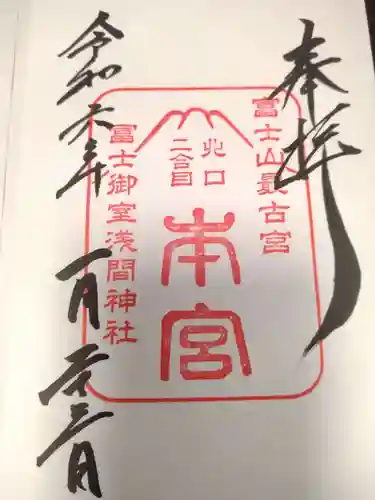 奉拝
冨士山最古宮
北口
二合目
本宮
冨士御室浅間神社
令和六年
一月二十三日